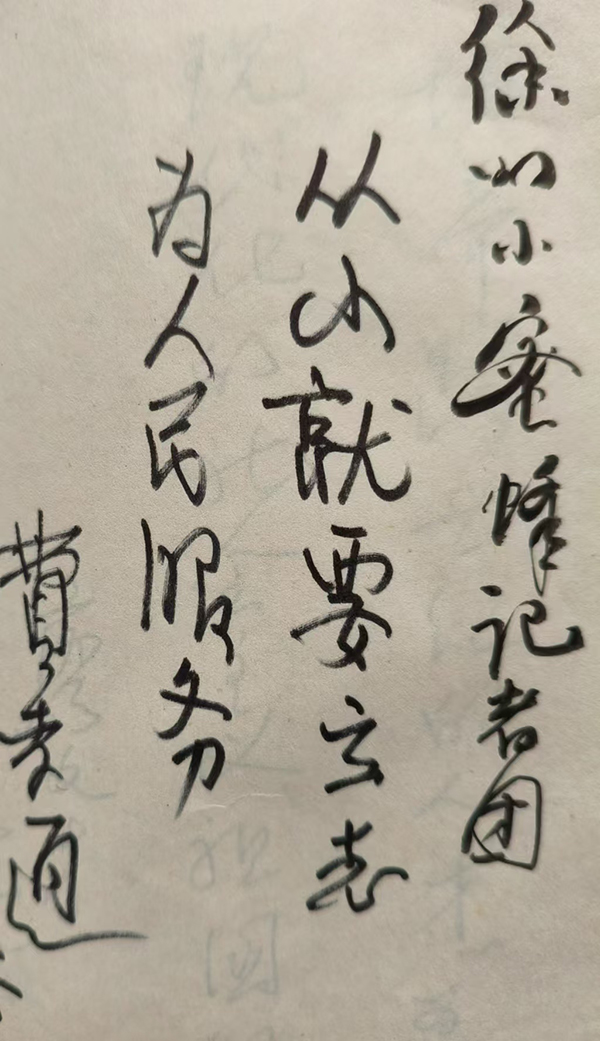 徐州小蜜蜂记者团
从小就要立志
为人民服务
費孝通